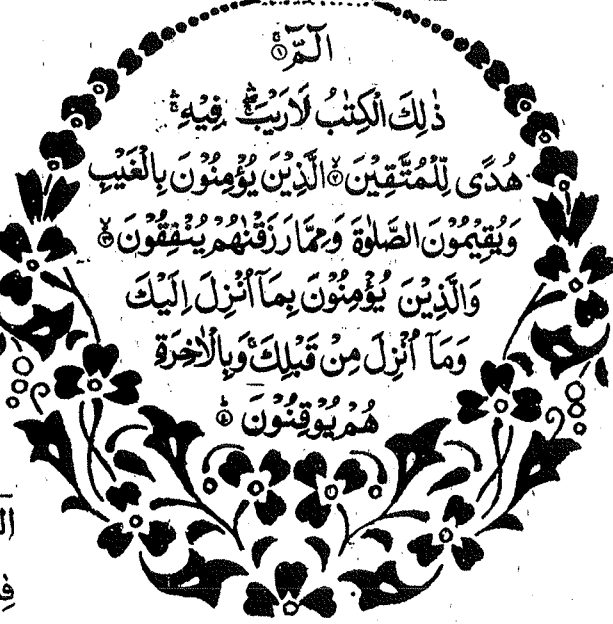 الٓمّٓ ۚ ۝۱
ذٰلِكَ الْكِتٰبُ لَا رَيْبَ ۛ فِيْهِ ۛ
هُدًى لِّلْمُتَّقِيْنَ ۝۲ الَّذِيْنَ يُؤْمِنُوْنَ بِالْغَيْبِ
وَيُقِيْمُوْنَ الصَّلٰوةَ وَمِمَّا رَزَقْنٰهُمْ يُنْفِقُوْنَ ۝۳
وَالَّذِيْنَ يُؤْمِنُوْنَ بِمَآ اُنْزِلَ اِلَيْكَ
وَمَآ اُنْزِلَ مِنْ قَبْلِكَ ۚ وَبِالْاٰخِرَةِ
هُمْ يُوْقِنُوْنَ ۝۴